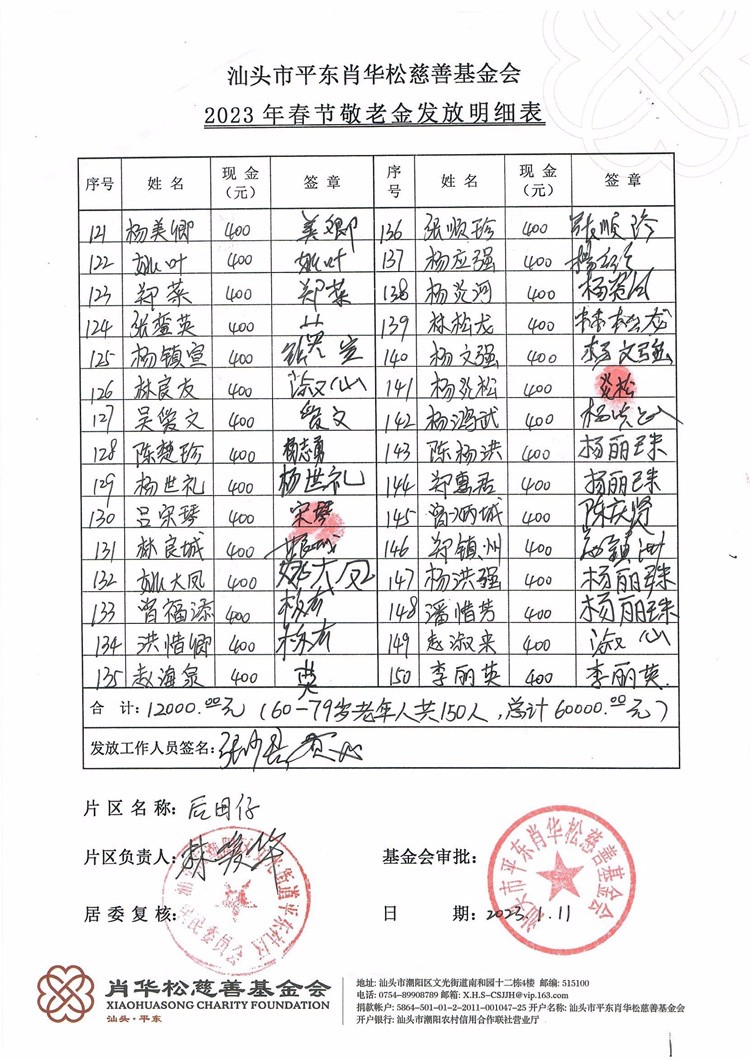 汕头市平东肖华松慈善基金会
2023年春节敬老金发放明细表
序号 姓名 现金(元) 签章 序号 姓名 现金(元) 签章
121 杨美卿 400 美卿 136 张顺珍 400 张顺珍
122 姚叶 400 姚叶 137 杨应强 400
123 郑菜 400 郑菜 138 杨炎河 400
124 张蛮英 400 139 林松龙 400 林松龙
125 杨镇宣 400 140 杨文强 400 杨文强
126 林良友 400 141 杨炎松 400 炎松
127 吴爱文 400 爱文 142 杨鸿武 400
128 陈楚珍 400 杨志勇 143 陈杨洪 400 杨丽珠
129 杨世礼 400 杨世礼 144 郑惠君 400 杨丽珠
130 吕宋琴 400 宋琴 145 曾炳城 400 陈庆贤
131 林良城 400 146 郑镇州 400
132 姚大凤 400 姚大凤 147 杨洪强 400 杨丽珠
133 曾福添 400 148 潘惜芳 400 杨丽珠
134 洪惜卿 400 149 赵淑来 400
135 赵海泉 400 150 李丽英 400 李丽英
合计:12000.00元(60—79岁老年人共150人,总计60000.00元)
发放工作人员签名:
片区名称:后田仔
片区负责人:林
基金会审批:
汕头市平东肖华松慈善基金会
居委复核:
街道平东社区居民委员会
日期:2023.1.11
肖华松慈善基金会
XIAOHUASONG CHARITY FOUNDATION
汕头·平东
地址: 汕头市潮阳区文光街道南和园十二栋4楼 邮编: 515100
电话: 0754-89908789 邮箱: X.H.S-CSJJH@vip.163.com
捐款帐户: 5864-501-01-2-2011-001047-25 开户名称: 汕头市平东肖华松慈善基金会
开户银行: 汕头市潮阳农村信用合作联社营业厅